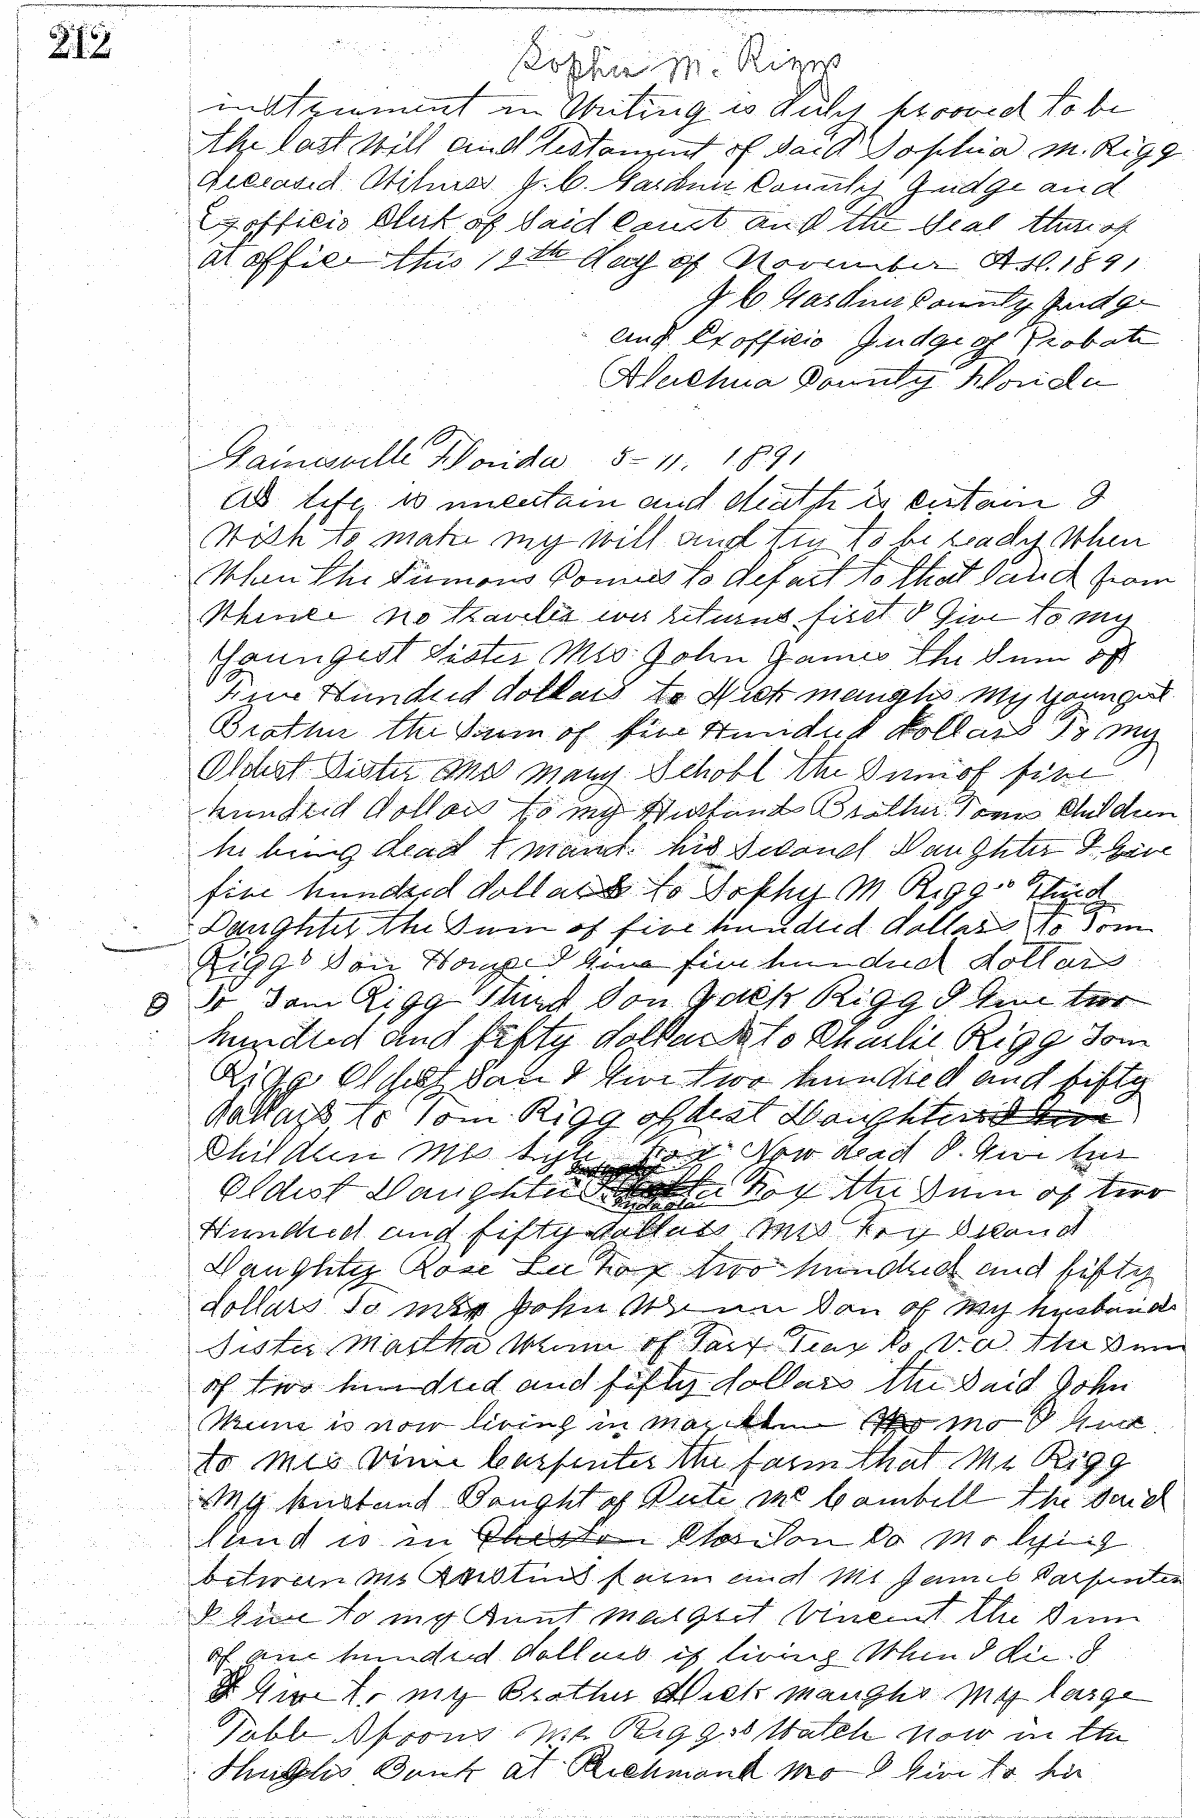 212
Sophia M. Riggs
instrument in Writing is duly prooved to be
the last Will and Testament of Said Sophia M. Rigg
deceased Witness J. C. Gardner County Judge and
Exofficio Clerk of Said Court and the Seal thereof
at office this 12th day of November A.D. 1891
J C Gardner County Judge
and Exofficio Judge of Probate
Alachua County Florida
Gainesville Florida 5-11. 1891
As life is uncertain and death is certain I
Wish to make my will and try to be ready When
When the Sumons Comes to depart to that land from
Whence no traveler ever returns first I Give to my
Youngest Sister Mrs John James the Sum of
Five Hundred dollars to Dick maughs My youngest
Brother the Sum of five Hundred dollars To my
Oldest Sister Mrs Mary Schobl the Sum of five
hundred dollars to my Husbands Brother Toms Children
he being dead his Second Daughter I Give
five hundred dollars to Sophy M Riggs Third
Daughter the Sum of five hundred dollars to Tom
Riggs Son I Give five hundred dollars
To Tom Rigg Third Son Jack Rigg I Give two
hundred and fifty dollars to Charlie Rigg Tom
Rigg Oldest Son I Give two hundred and fifty
dollars to Tom Rigg oldest Daughters I Give
Children Mrs Fox Now dead I Give her
Oldest Daughter Fox the Sum of two
Hundred and fifty dollars Mrs Fox Second
Daughter Rose Lee Fox two hundred and fifty
dollars To Mr John Wrenn Son of My husbands
Sister Martha Wrenn of V.a the Sum
of two hundred and fifty dollars the Said John
Wrenn is now living in mo I Give
to Mrs Vinie Carpenter the farm that Mr Rigg
My husband Bought of Pete Mc Cambell the Said
land is in Co Mo lying
between Mr Austins farm and Mr James Carpenter
I Give to my Aunt Margret Vincent the Sum
of one hundred dollars if living When I die. I
I Give to my Brother Dick maughs My large
Table Spoons Mr Riggs Watch now in the
Hughes Bank at Richmond Mo I Give to his